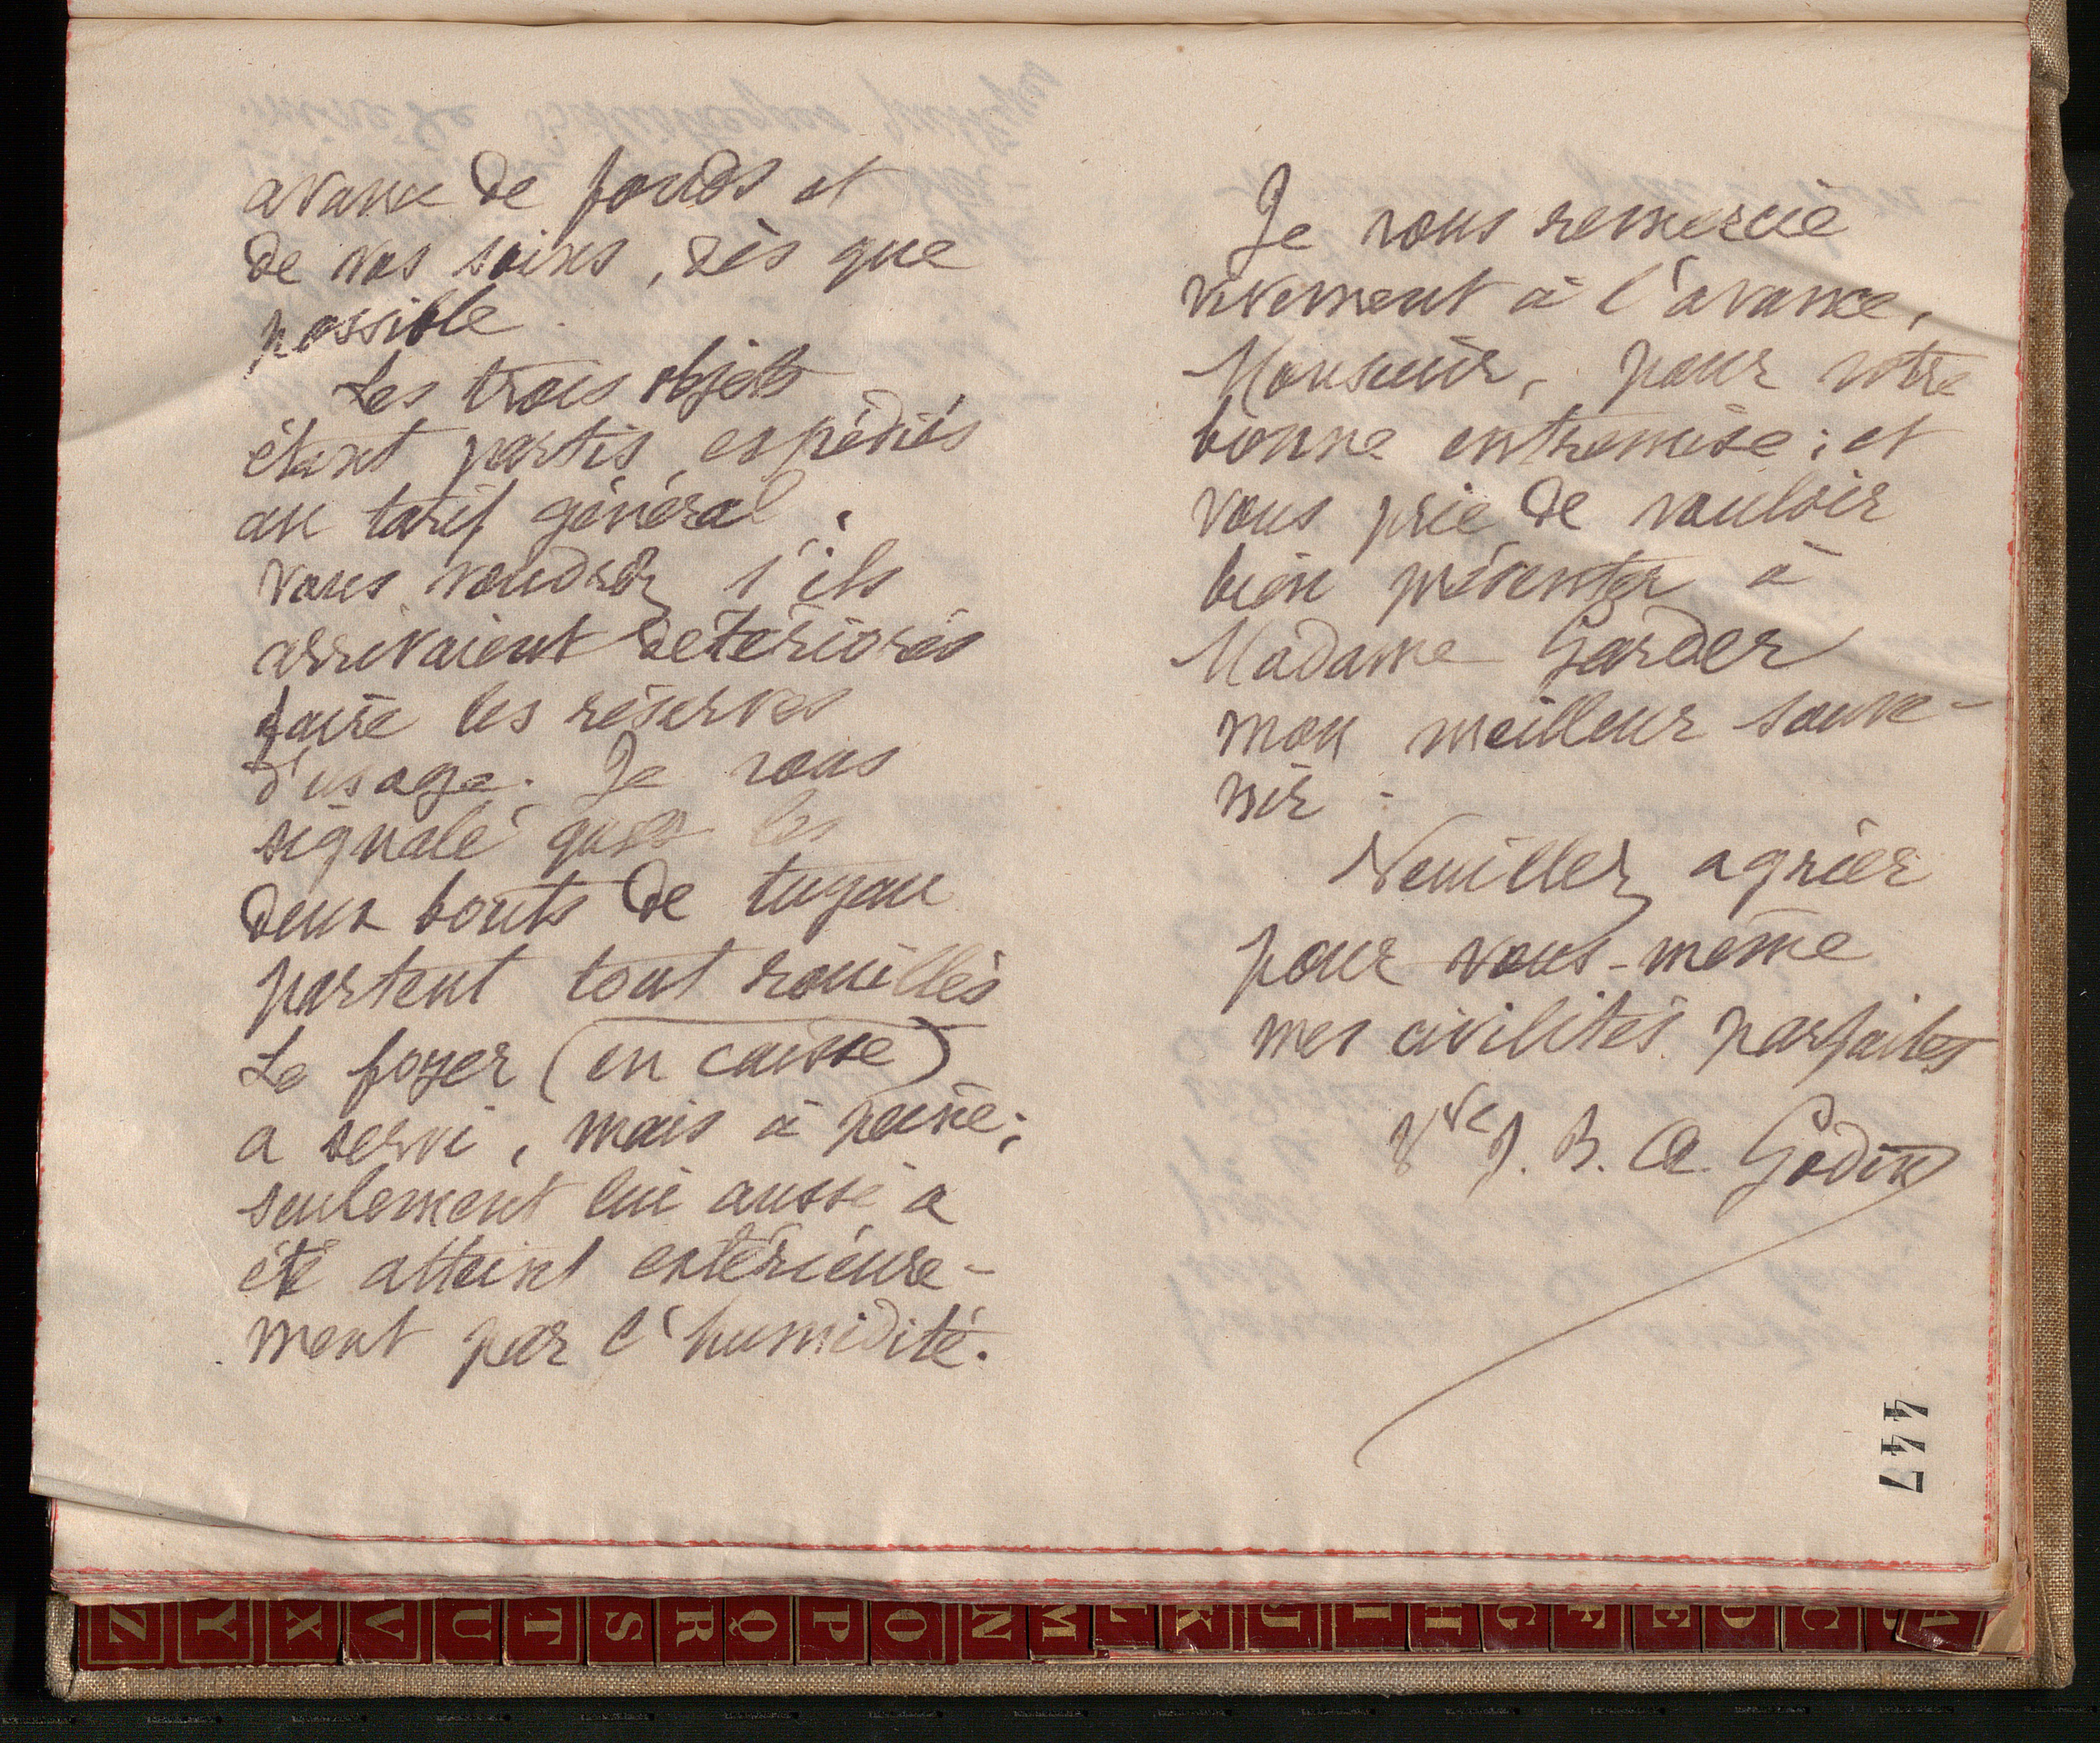 avance de fonds et
de vos soins, dès que
possible.
Les trois objets
étant partis expédiés
au tarif général,
vous voudrez s'ils
arrivaient détériorés
faire les réserves
d'usage. Je vous
signale que les
deux bouts de tuyau
partent tout rouillés
Le foyer (en caisse)
a servi, mais à peine;
seulement lui aussi a
été atteint extérieure-
ment par l'humidité.
Je vous remercie
vivement à l'avance,
Monsieur, pour votre
bonne entremise; et
vous prie de vouloir
bien présenter à
Madame Garder
mon meilleur souve-
nir.
Veuillez agréer
pour vous-même
mes civilités parfaites
Vve J. B. A. Godin
447
Z Y X V U T S R Q P O N M L K J I H G F E D C B A